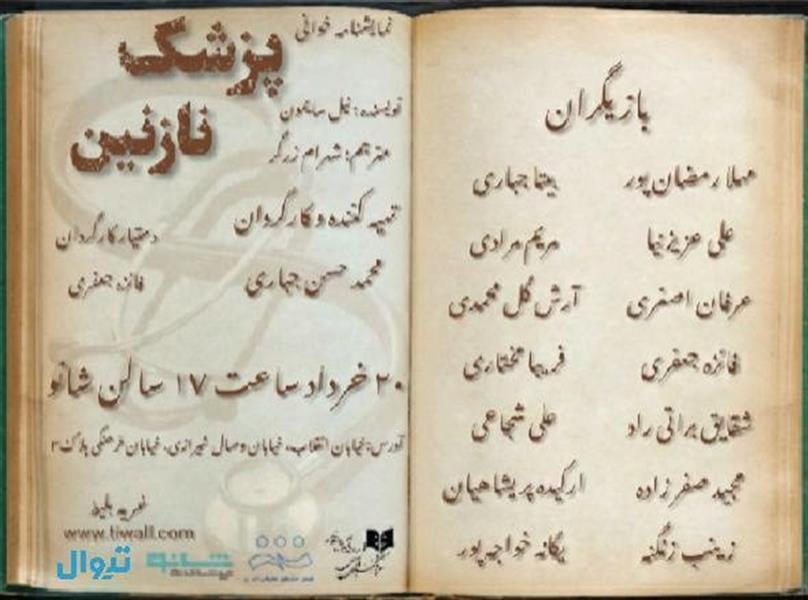 بازیگران
مهلا رمضان پور بیتا جباری
علی عزیزنیا مریم مرادی
عرفان اصغری آرش گل محمدی
فائزه جعفری فریبا مختاری
شقایق براتی راد علی شجاعی
مجید صفرزاده ارکیده پریشاهیان
زینب زنگنه یگانه خواجه پور
نمایشنامه خوانی
پزشک
نازنین
نویسنده: نیل سایمون
مترجم: شهرام زرگر
تهیه کننده و کارگردان
محمد حسن جباری
دستیار کارگردان
فائزه جعفری
۲۰ خرداد ساعت ۱۷ سالن شانو
آدرس: خیابان انقلاب، خیابان وصال شیرازی، خیابان فرهنگی پلاک ۳
خرید بلیط
www.tiwall.com
تیوال
شانو